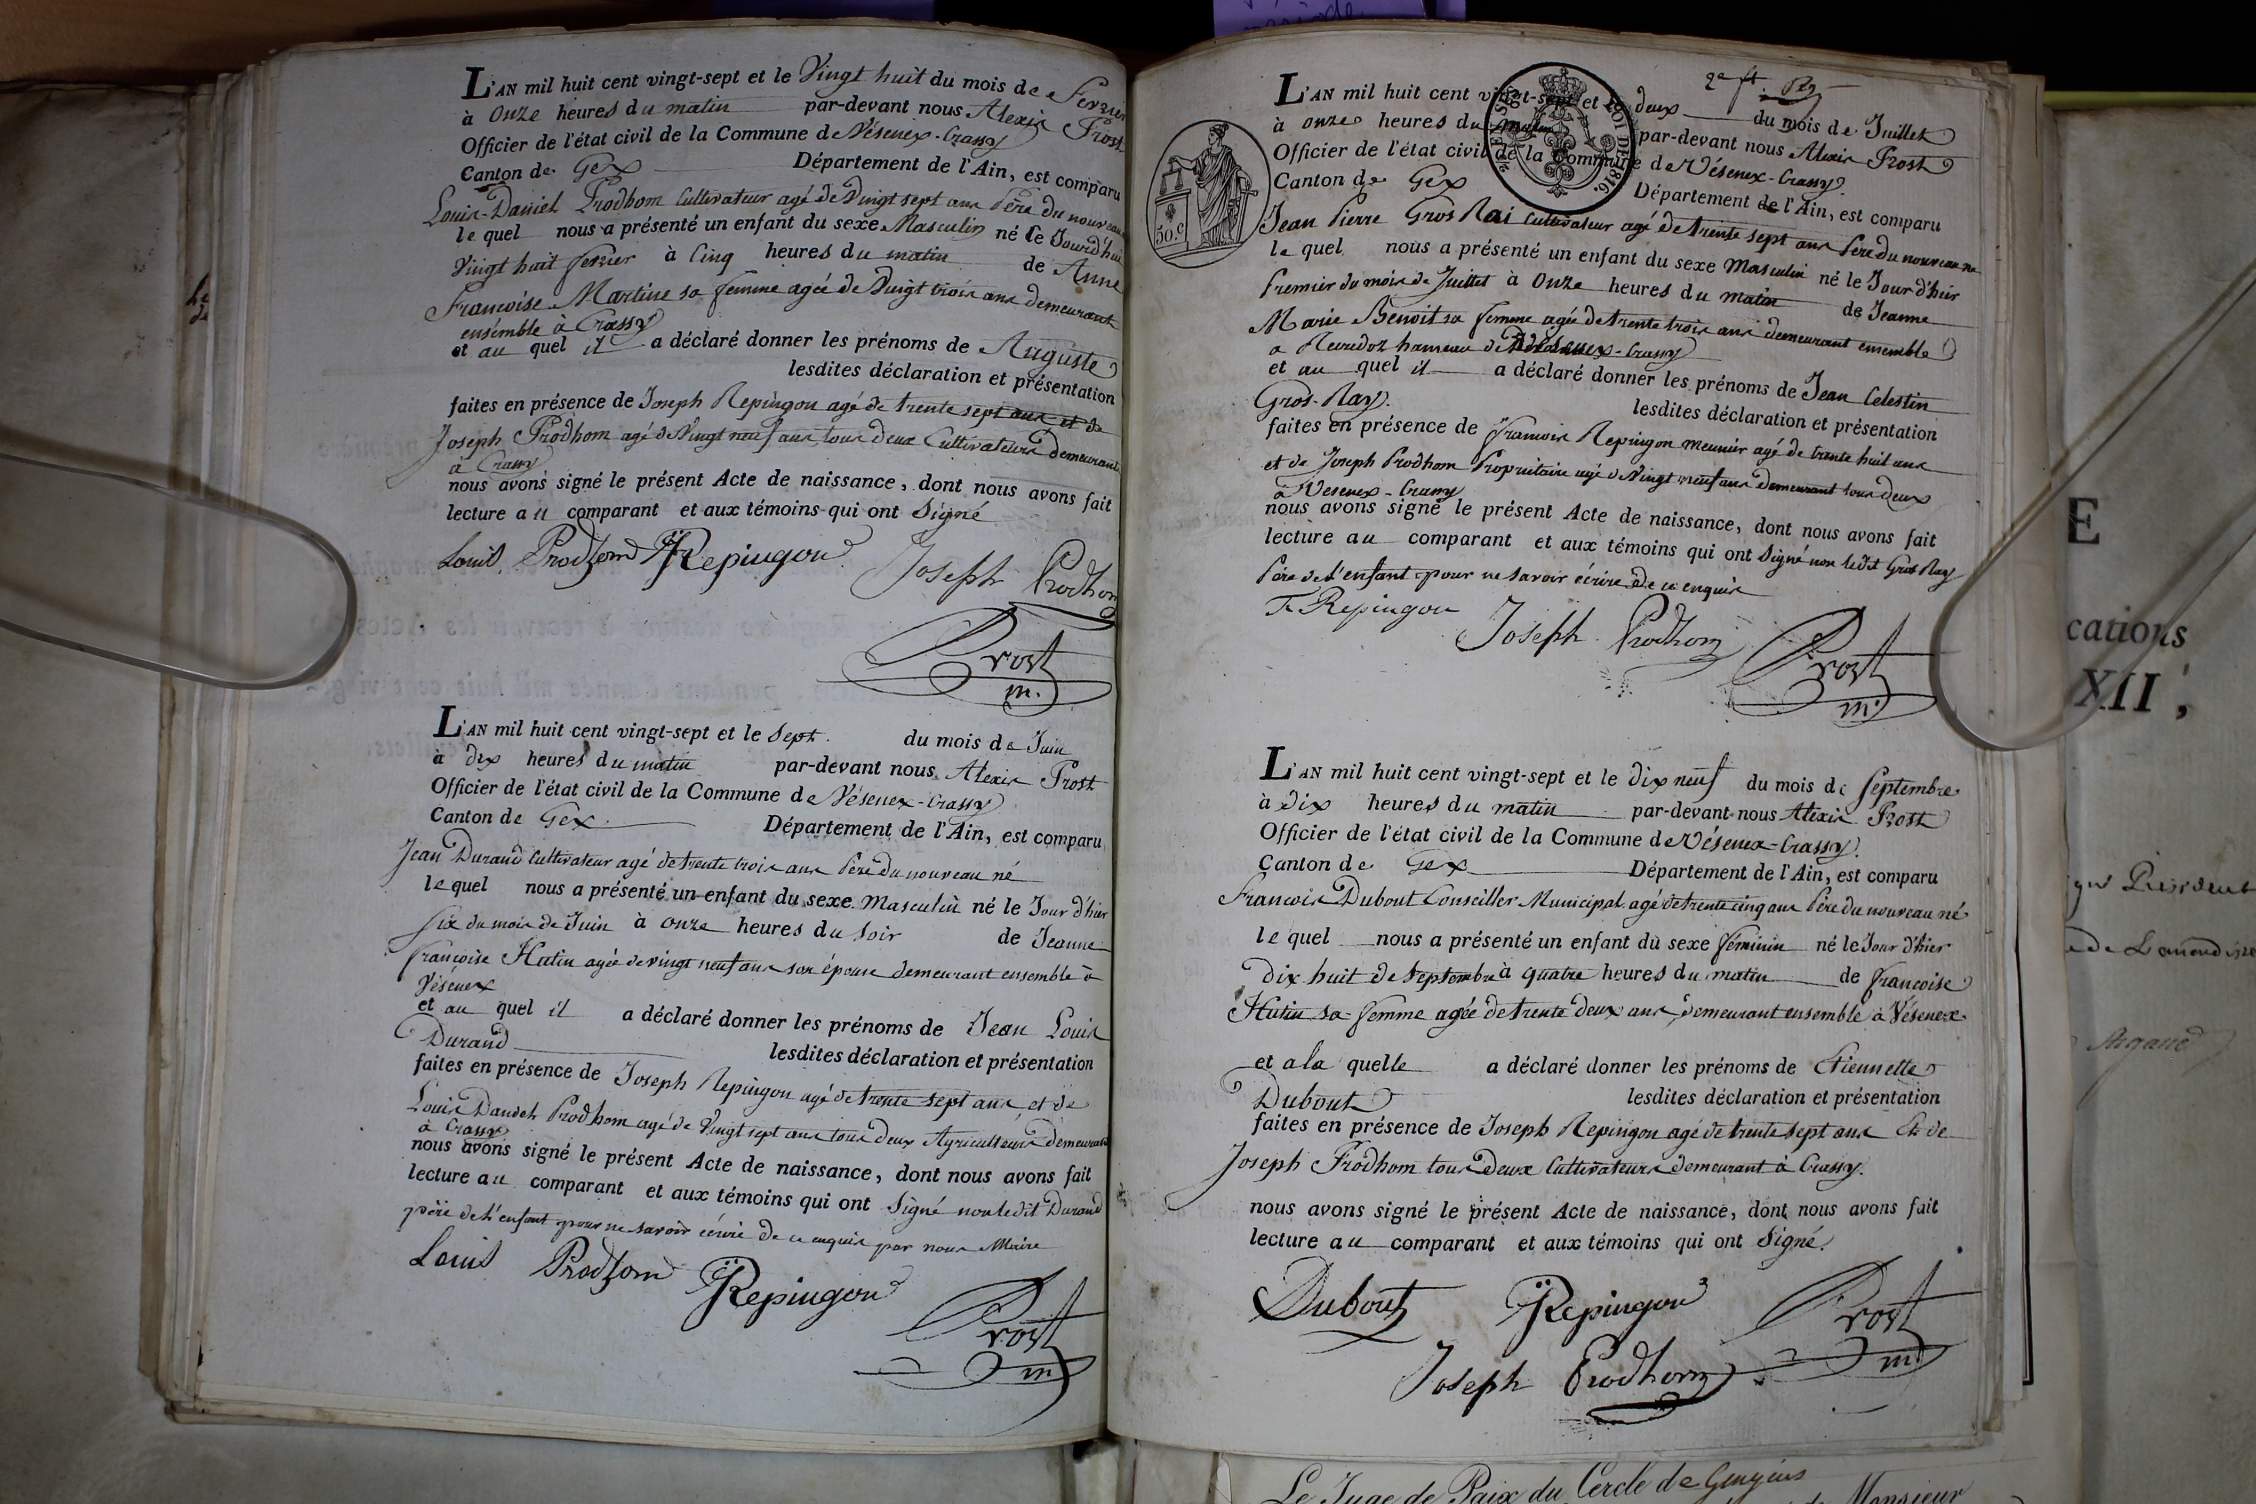 L'AN mil huit cent vingt-sept et le Vingt huit du mois de Fevrier
à Onze heures du matin par-devant nous Alexis Prost
Officier de l'état civil de la Commune de Vésenex-Crassy
Canton de Gex Département de l'Ain, est comparu
Louis-Daniel Prodhom Cultivateur agé de Vingt sept ans Père du nouveau
le quel nous a présenté un enfant du sexe Masculin né le Jourd'hui
Vingt huit fevrier à Cinq heures du matin de Anne
Francoise Martine sa femme agée de Vingt trois ans demeurant
ensemble à Crassy
et au quel il a déclaré donner les prénoms de Auguste
lesdites déclaration et présentation
faites en présence de Joseph Repingon agé de trente sept ans et de
Joseph Prodhom agé de Vingt neuf ans tous deux Cultivateurs demeurant
à Crassy
nous avons signé le présent Acte de naissance, dont nous avons fait
lecture au comparant et aux témoins qui ont Signé
Louis Prodhom JRepingon Joseph Prodhom
Prost
m.
L'AN mil huit cent vingt-sept et le Sept du mois de Juin
à dix heures du matin par-devant nous Alexis Prost
Officier de l'état civil de la Commune de Vésenex-Crassy
Canton de Gex Département de l'Ain, est comparu
Jean Durand Cultivateur agé de trente trois ans Père du nouveau né
le quel nous a présenté un enfant du sexe Masculin né le Jour d'hier
Six du mois de Juin à onze heures du soir de Jeanne
françoise Hutin agée de vingt neuf ans son épouse demeurant ensemble à
Vésenex
et au quel il a déclaré donner les prénoms de Jean Louis
Durand lesdites déclaration et présentation
faites en présence de Joseph Repingon agé de trente sept ans et de
Louis Daniel Prodhom agé de Vingt sept ans tous deux Agriculteurs demeurant
à Crassy
nous avons signé le présent Acte de naissance, dont nous avons fait
lecture au comparant et aux témoins qui ont Signé non ledit Durand
père de l'enfant pour ne savoir écrire de ce enquis par nous Maire
Louis Prodhom JRepingon
Prost
m
2e ft.
L'AN mil huit cent vingt-sept et le deux du mois de Juillet
à onze heures du matin par-devant nous Alexis Prost
Officier de l'état civil de la Commune de Vésenex-Crassy
Canton de Gex Département de l'Ain, est comparu
50.c
1816.
Jean Pierre Gros Rai Cultivateur agé de trente sept ans Père du nouveau né
le quel nous a présenté un enfant du sexe Masculin né le Jour d'hier
Premier du mois de Juillet à Onze heures du matin de Jeanne
Marie Benoit sa femme agée de trente trois ans demeurant ensemble
a hameau de Vésenex-Crassy
et au quel il a déclaré donner les prénoms de Jean Celestin
Gros-Ray. lesdites déclaration et présentation
faites en présence de francois Repingon meunier agé de trente huit ans
et de Joseph Prodhom Propriétaire agé de Vingt neuf ans demeurant tous deux
à Vesenex-Crassy
nous avons signé le présent Acte de naissance, dont nous avons fait
lecture au comparant et aux témoins qui ont Signé non ledit Gros Ray
Père de l'enfant pour ne savoir écrire de ce enquis
Fr Repingon Joseph Prodhom
Prost
m.
L'AN mil huit cent vingt-sept et le dix neuf du mois de Septembre
à dix heures du matin par-devant nous Alexis Prost
Officier de l'état civil de la Commune de Vésenex-Crassy.
Canton de Gex Département de l'Ain, est comparu
Francois Dubout Conseiller Municipal agé de trente cinq ans Père du nouveau né
le quel nous a présenté un enfant du sexe féminin né le Jour d'hier
dix huit de Septembre à quatre heures du matin de francoise
Hutin sa femme agée de trente deux ans demeurant ensemble à Vésenex
et a la quelle a déclaré donner les prénoms de Etiennette
Dubout lesdites déclaration et présentation
faites en présence de Joseph Repingon agé de trente sept ans Et de
Joseph Prodhom tous deux Cultivateurs demeurant à Crassy.
nous avons signé le présent Acte de naissance, dont nous avons fait
lecture au comparant et aux témoins qui ont Signé.
Dubout JRepingon Prost
Joseph Prodhom m
E
cations
XII,
Président
Le Juge de Paix du Cercle de Gingins
Monsieur